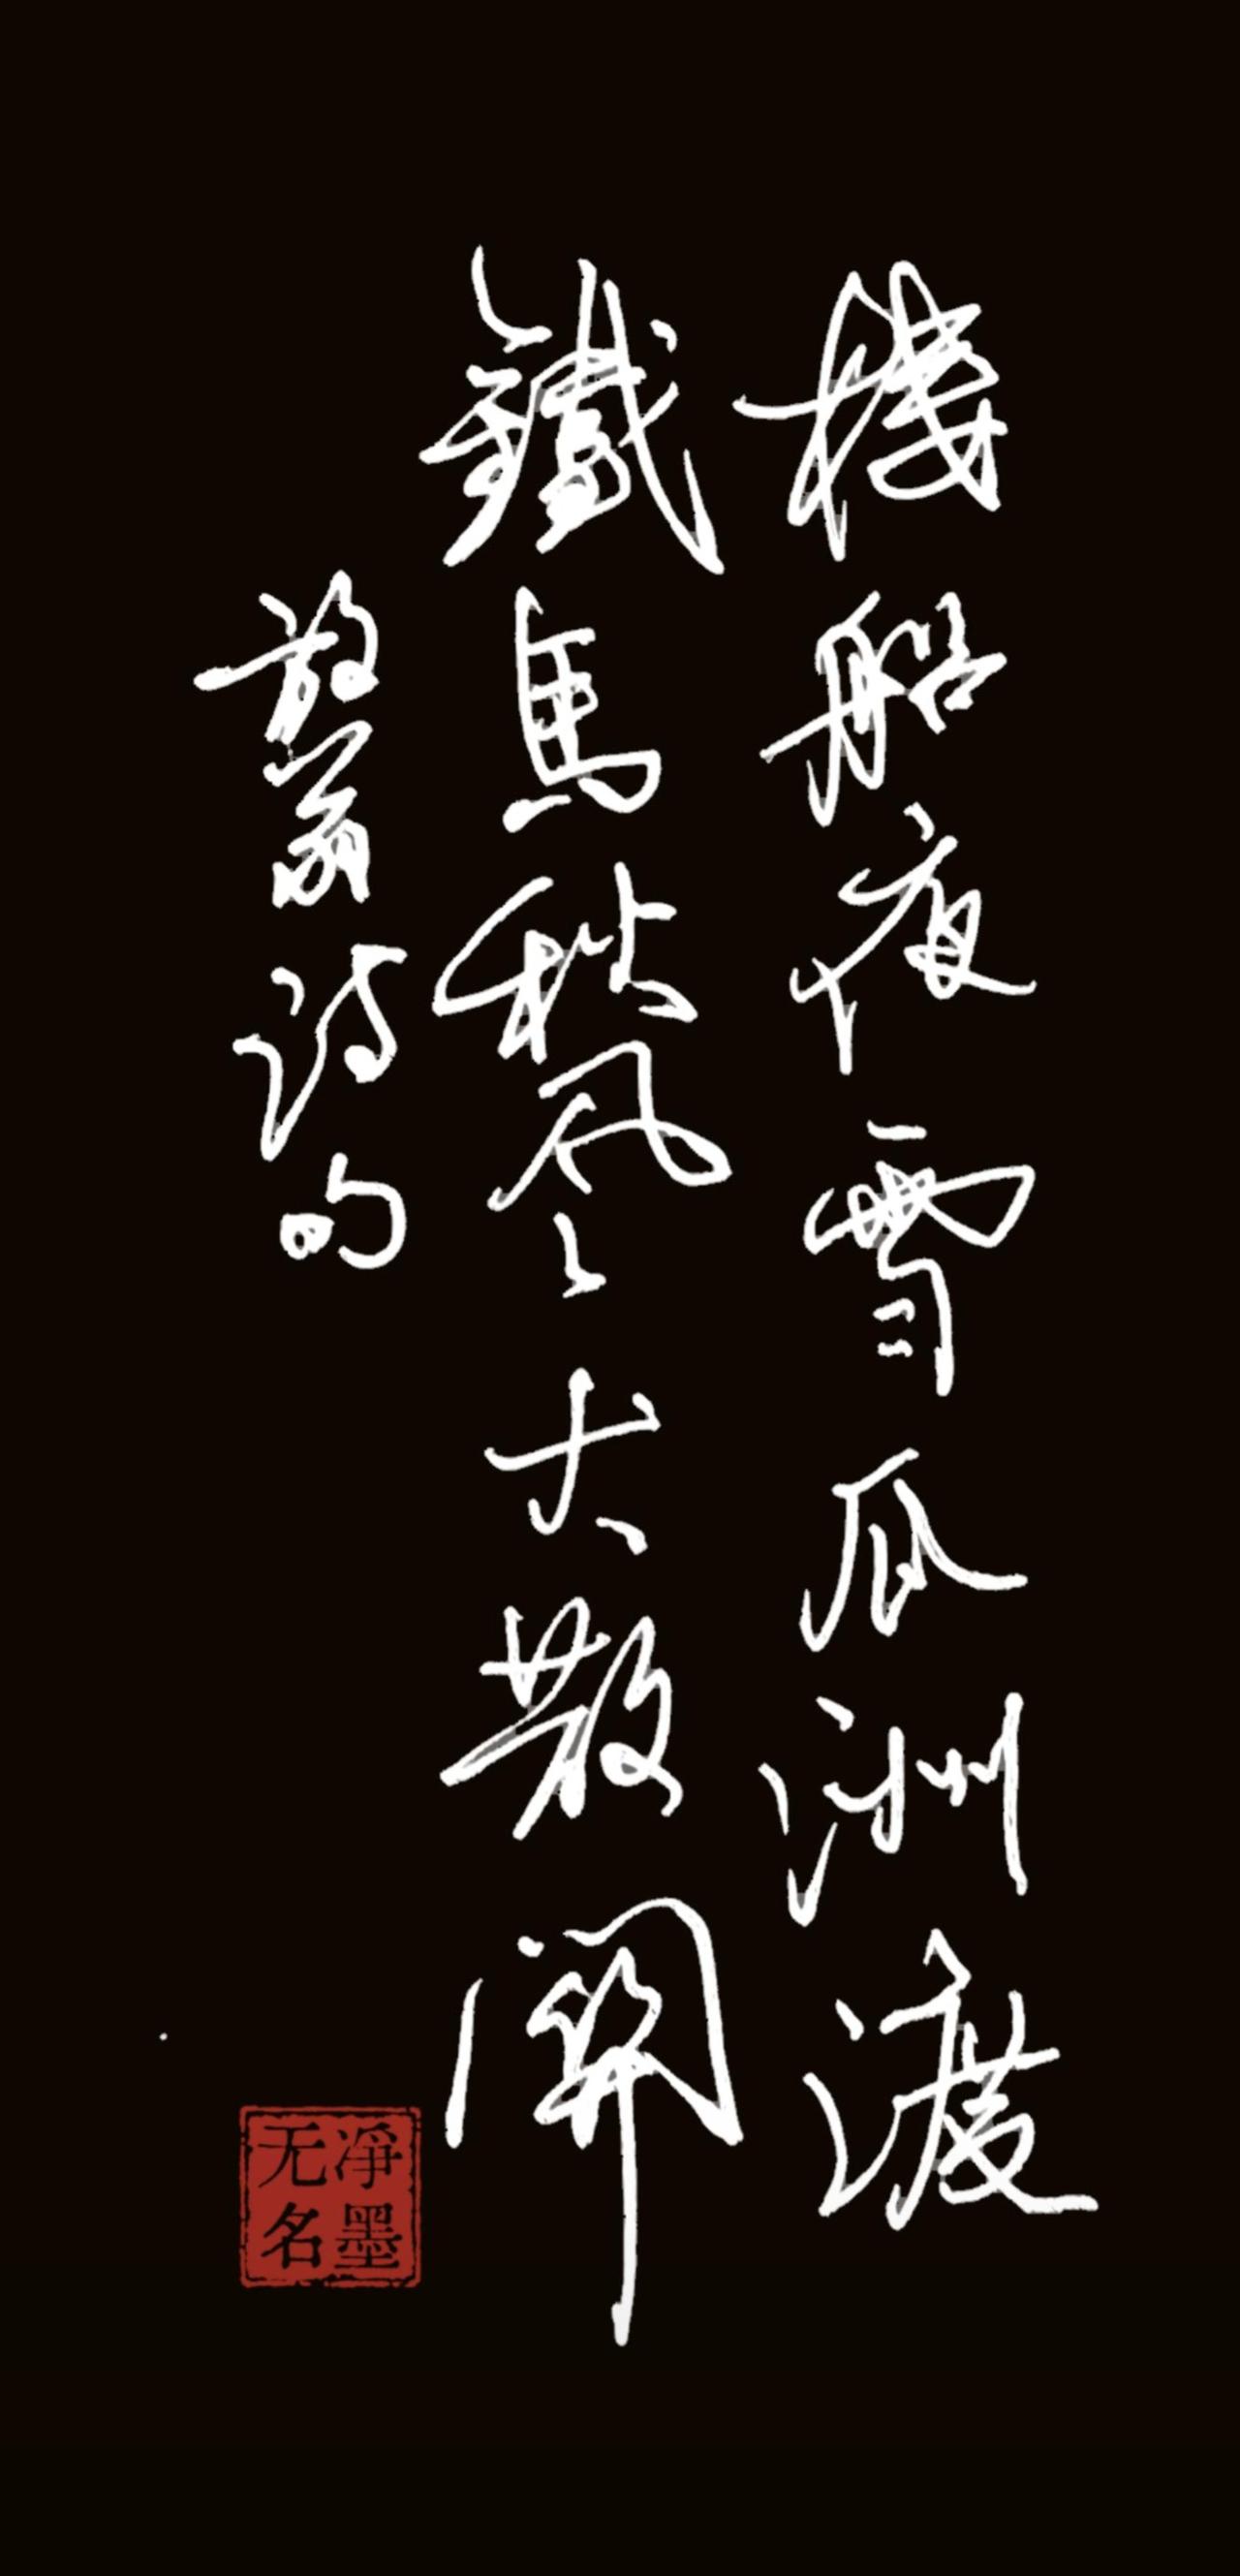 樓船夜雪瓜洲渡
鐵馬秋風大散關
放翁詩句
淨墨
无名